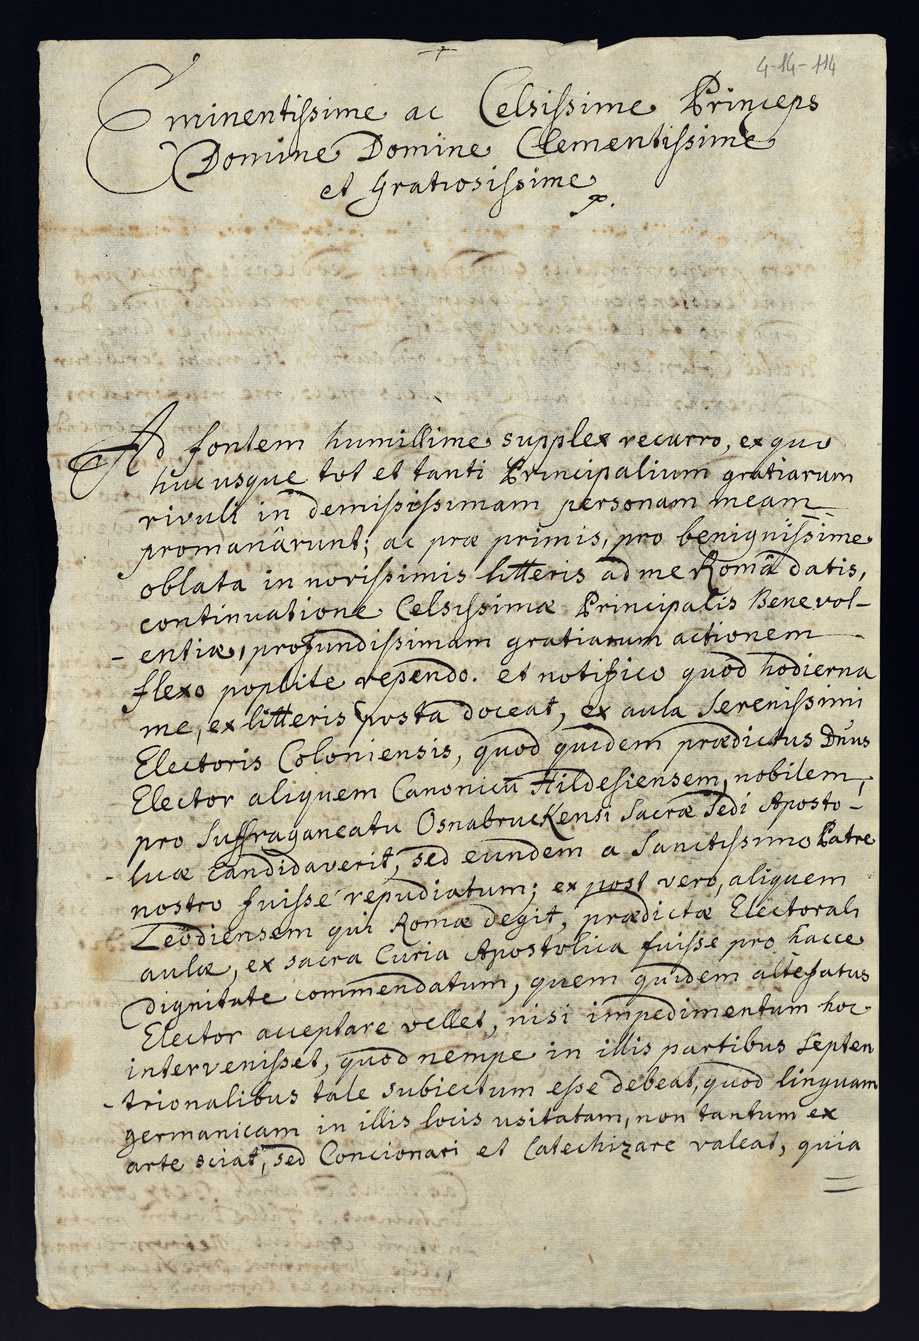 4-14-114
Eminentissime ac Celsissime Princeps
Domine Domine Clementissime
et Gratiosissime
Ad fontem humillime supplex recurro, ex quo
hucusque tot et tanti Principalium gratiarum
rivuli in demississimam personam meam
promanârunt; ac præ primis, pro benignissime
oblata in novissimis litteris ad me Româ datis,
continuatione Celsissimæ Principalis Benevol-
-entiæ, profundissimam gratiarum actionem
flexo poplite rependo. et notifico quod hodierna
me, ex litteris posta doceat, ex aula Serenissimi
Electoris Coloniensis, quod quidem prædictus Dnus
Elector aliquem Canonicū Hildesiensem, nobilem,
pro Suffraganeatu Osnabruckensi Sacræ Sedi Aposto-
-licæ candidaverit, sed eundem a Sanctissimo Patre
nostro fuisse repudiatum; ex post vero, aliquem
Leodiensem qui Romæ degit, prædictæ Electorali
aulæ, ex sacra Curia Apostolica fuisse pro hacce
dignitate commendatum, quem quidem altefatus
Elector acceptare vellet, nisi impedimentum hoc
intervenisset, quod nempe in illis partibus Septen
-trionalibus tale subiectum esse debeat, quod linguam
germanicam in illis locis usitatam, non tantum ex
arte sciat, sed Concionari et Catechizare valeat, quia